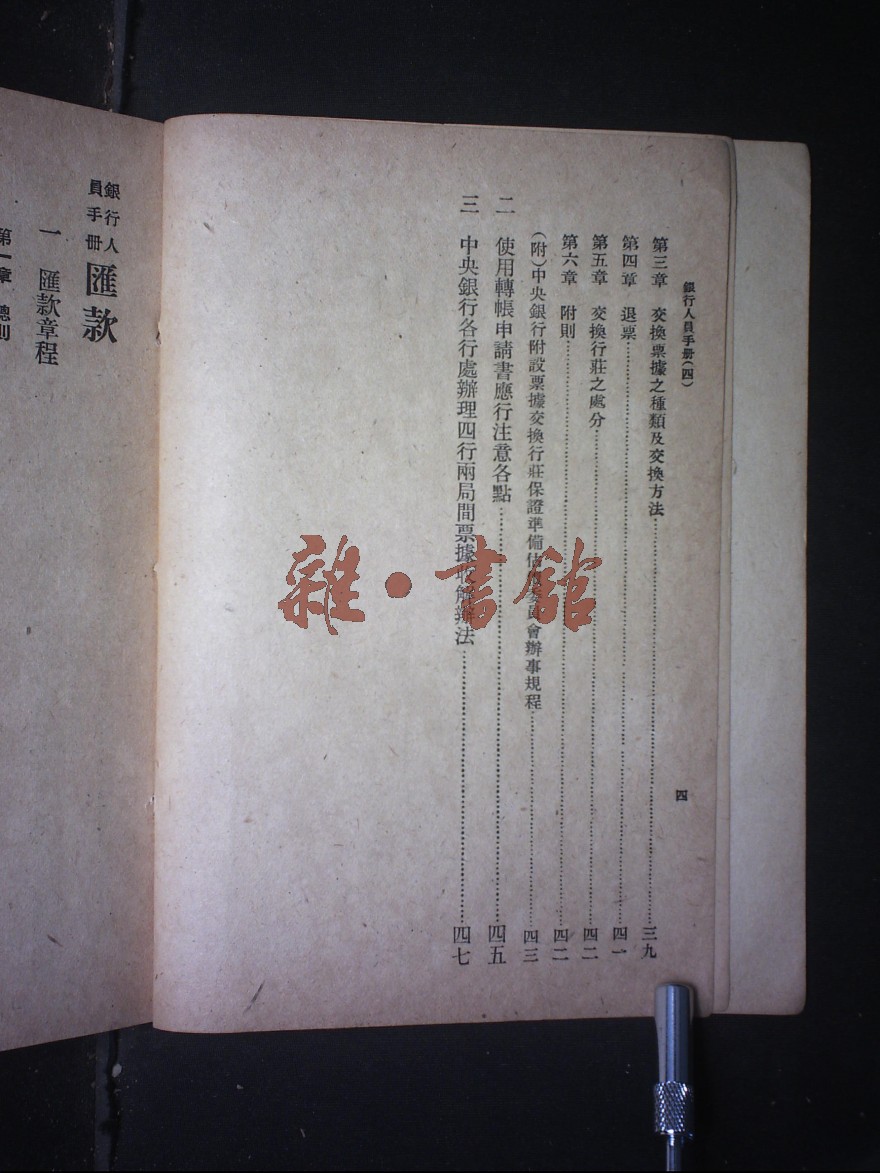 銀行人員手冊(四)
四
第三章 交換票據之種類及交換方法……三九
第四章 退票……四一
第五章 交換行莊之處分……四二
第六章 附則……四二
(附)中央銀行附設票據交換行莊保證準備估價委員會辦事規程……四三
二 使用轉帳申請書應行注意各點……四五
三 中央銀行各行處辦理四行兩局間票據收解辦法……四七
銀行人員手冊 匯款
一 匯款章程
第一章 總則
雜·書館